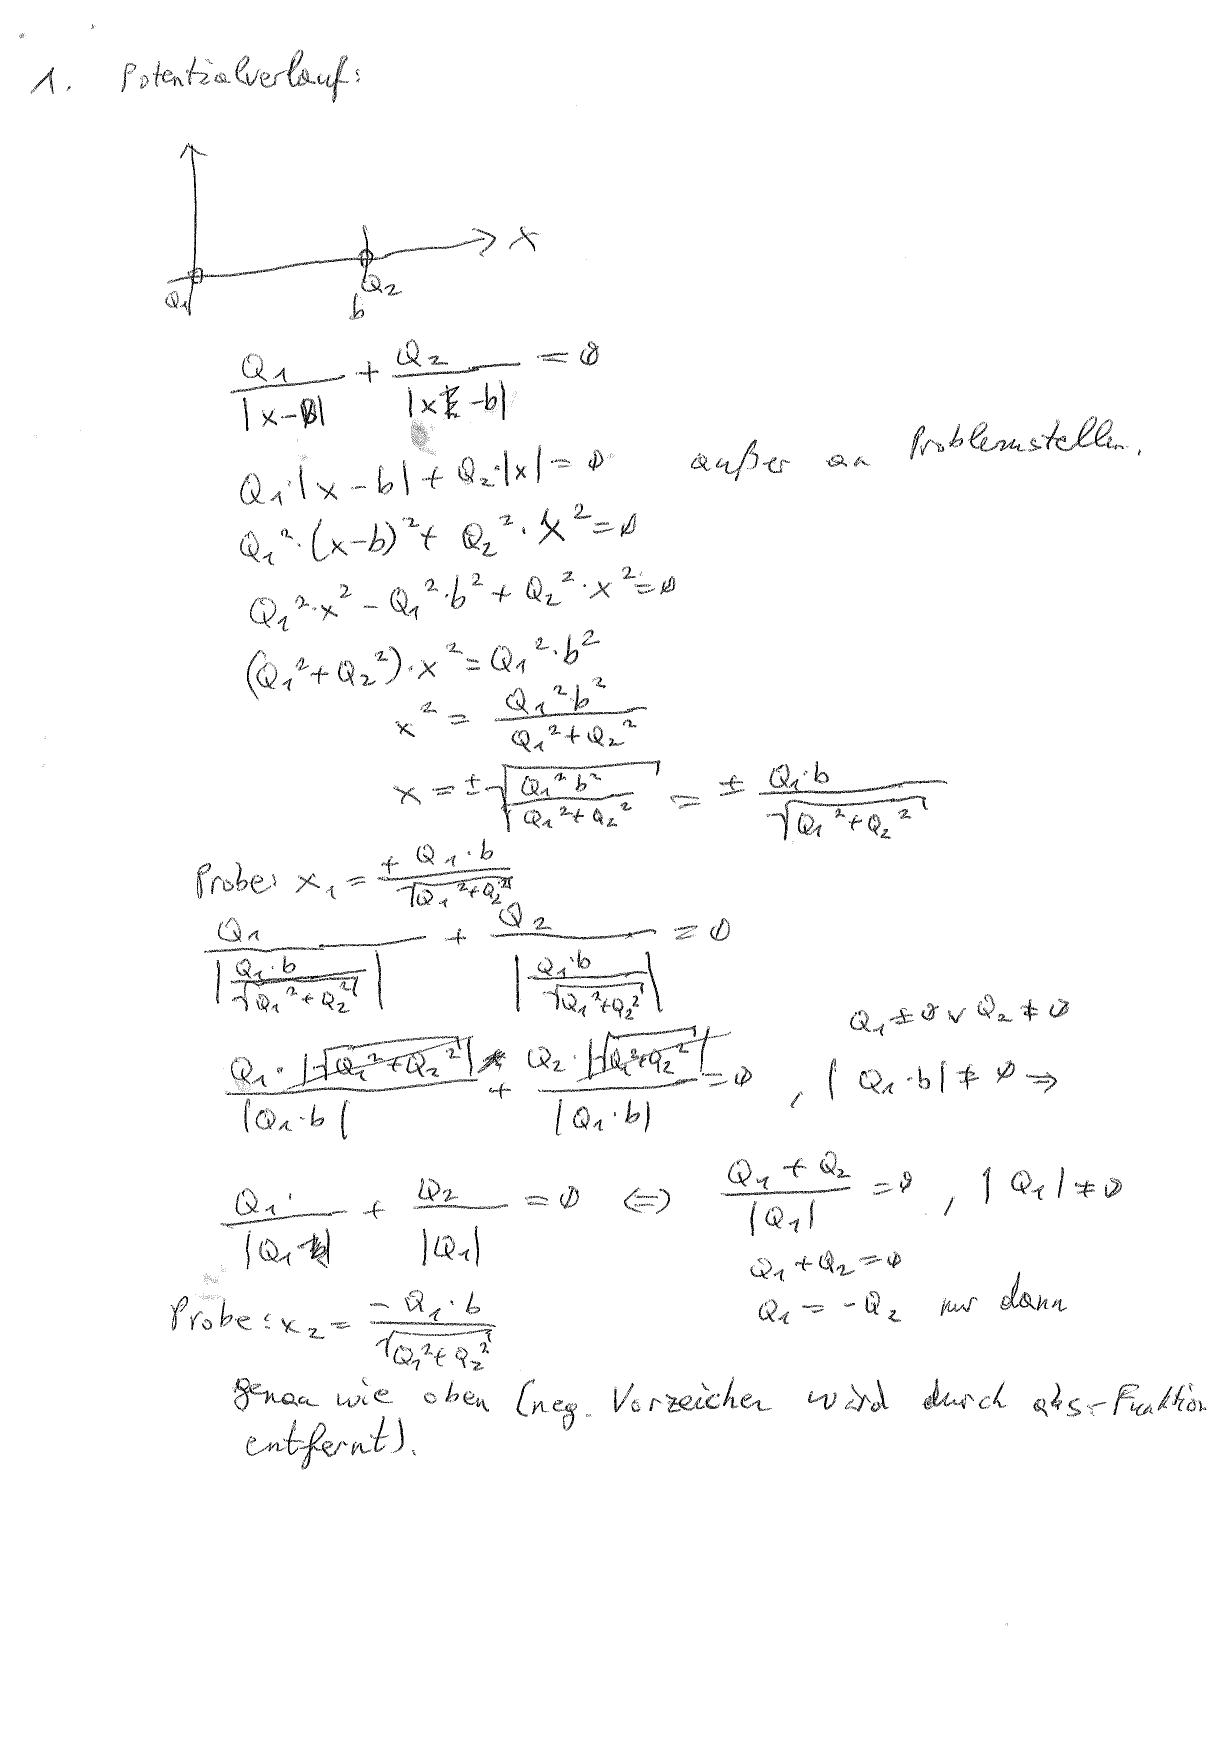 1. Potentialverlauf:
x
Q₁ Q₂
b
Q₁/|x-0| + Q₂/|x-b| = 0
Q₁·|x-b| + Q₂·|x| = 0 außer an Problemstellen.
Q₁²·(x-b)² + Q₂²·x² = 0
Q₁²·x² - Q₁²·b² + Q₂²·x² = 0
(Q₁²+Q₂²)·x² = Q₁²·b²
x² = Q₁²b²/(Q₁²+Q₂²)
x = ±√(Q₁²b²/(Q₁²+Q₂²)) = ± Q₁·b/√(Q₁²+Q₂²)
Probe: x₁ = +Q₁·b/√(Q₁²+Q₂²)
Q₁/|Q₁·b/√(Q₁²+Q₂²)| + Q₂/|Q₁·b/√(Q₁²+Q₂²)| = 0
Q₁≠0 ∨ Q₂≠0
Q₁·|√(Q₁²+Q₂²)|/|Q₁·b| + Q₂·|√(Q₁²+Q₂²)|/|Q₁·b| = 0 , |Q₁·b| ≠ 0 ⇒
Q₁/|Q₁| + Q₂/|Q₁| = 0 ⇔ (Q₁+Q₂)/|Q₁| = 0 , |Q₁| ≠ 0
Q₁+Q₂ = 0
Q₁ = -Q₂ nur dann
Probe: x₂ = -Q₁·b/√(Q₁²+Q₂²)
genau wie oben (neg. Vorzeichen wird durch abs-Funktion
entfernt).